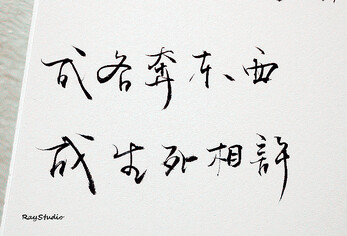 或各奔东西
或生死相許
RayStudio